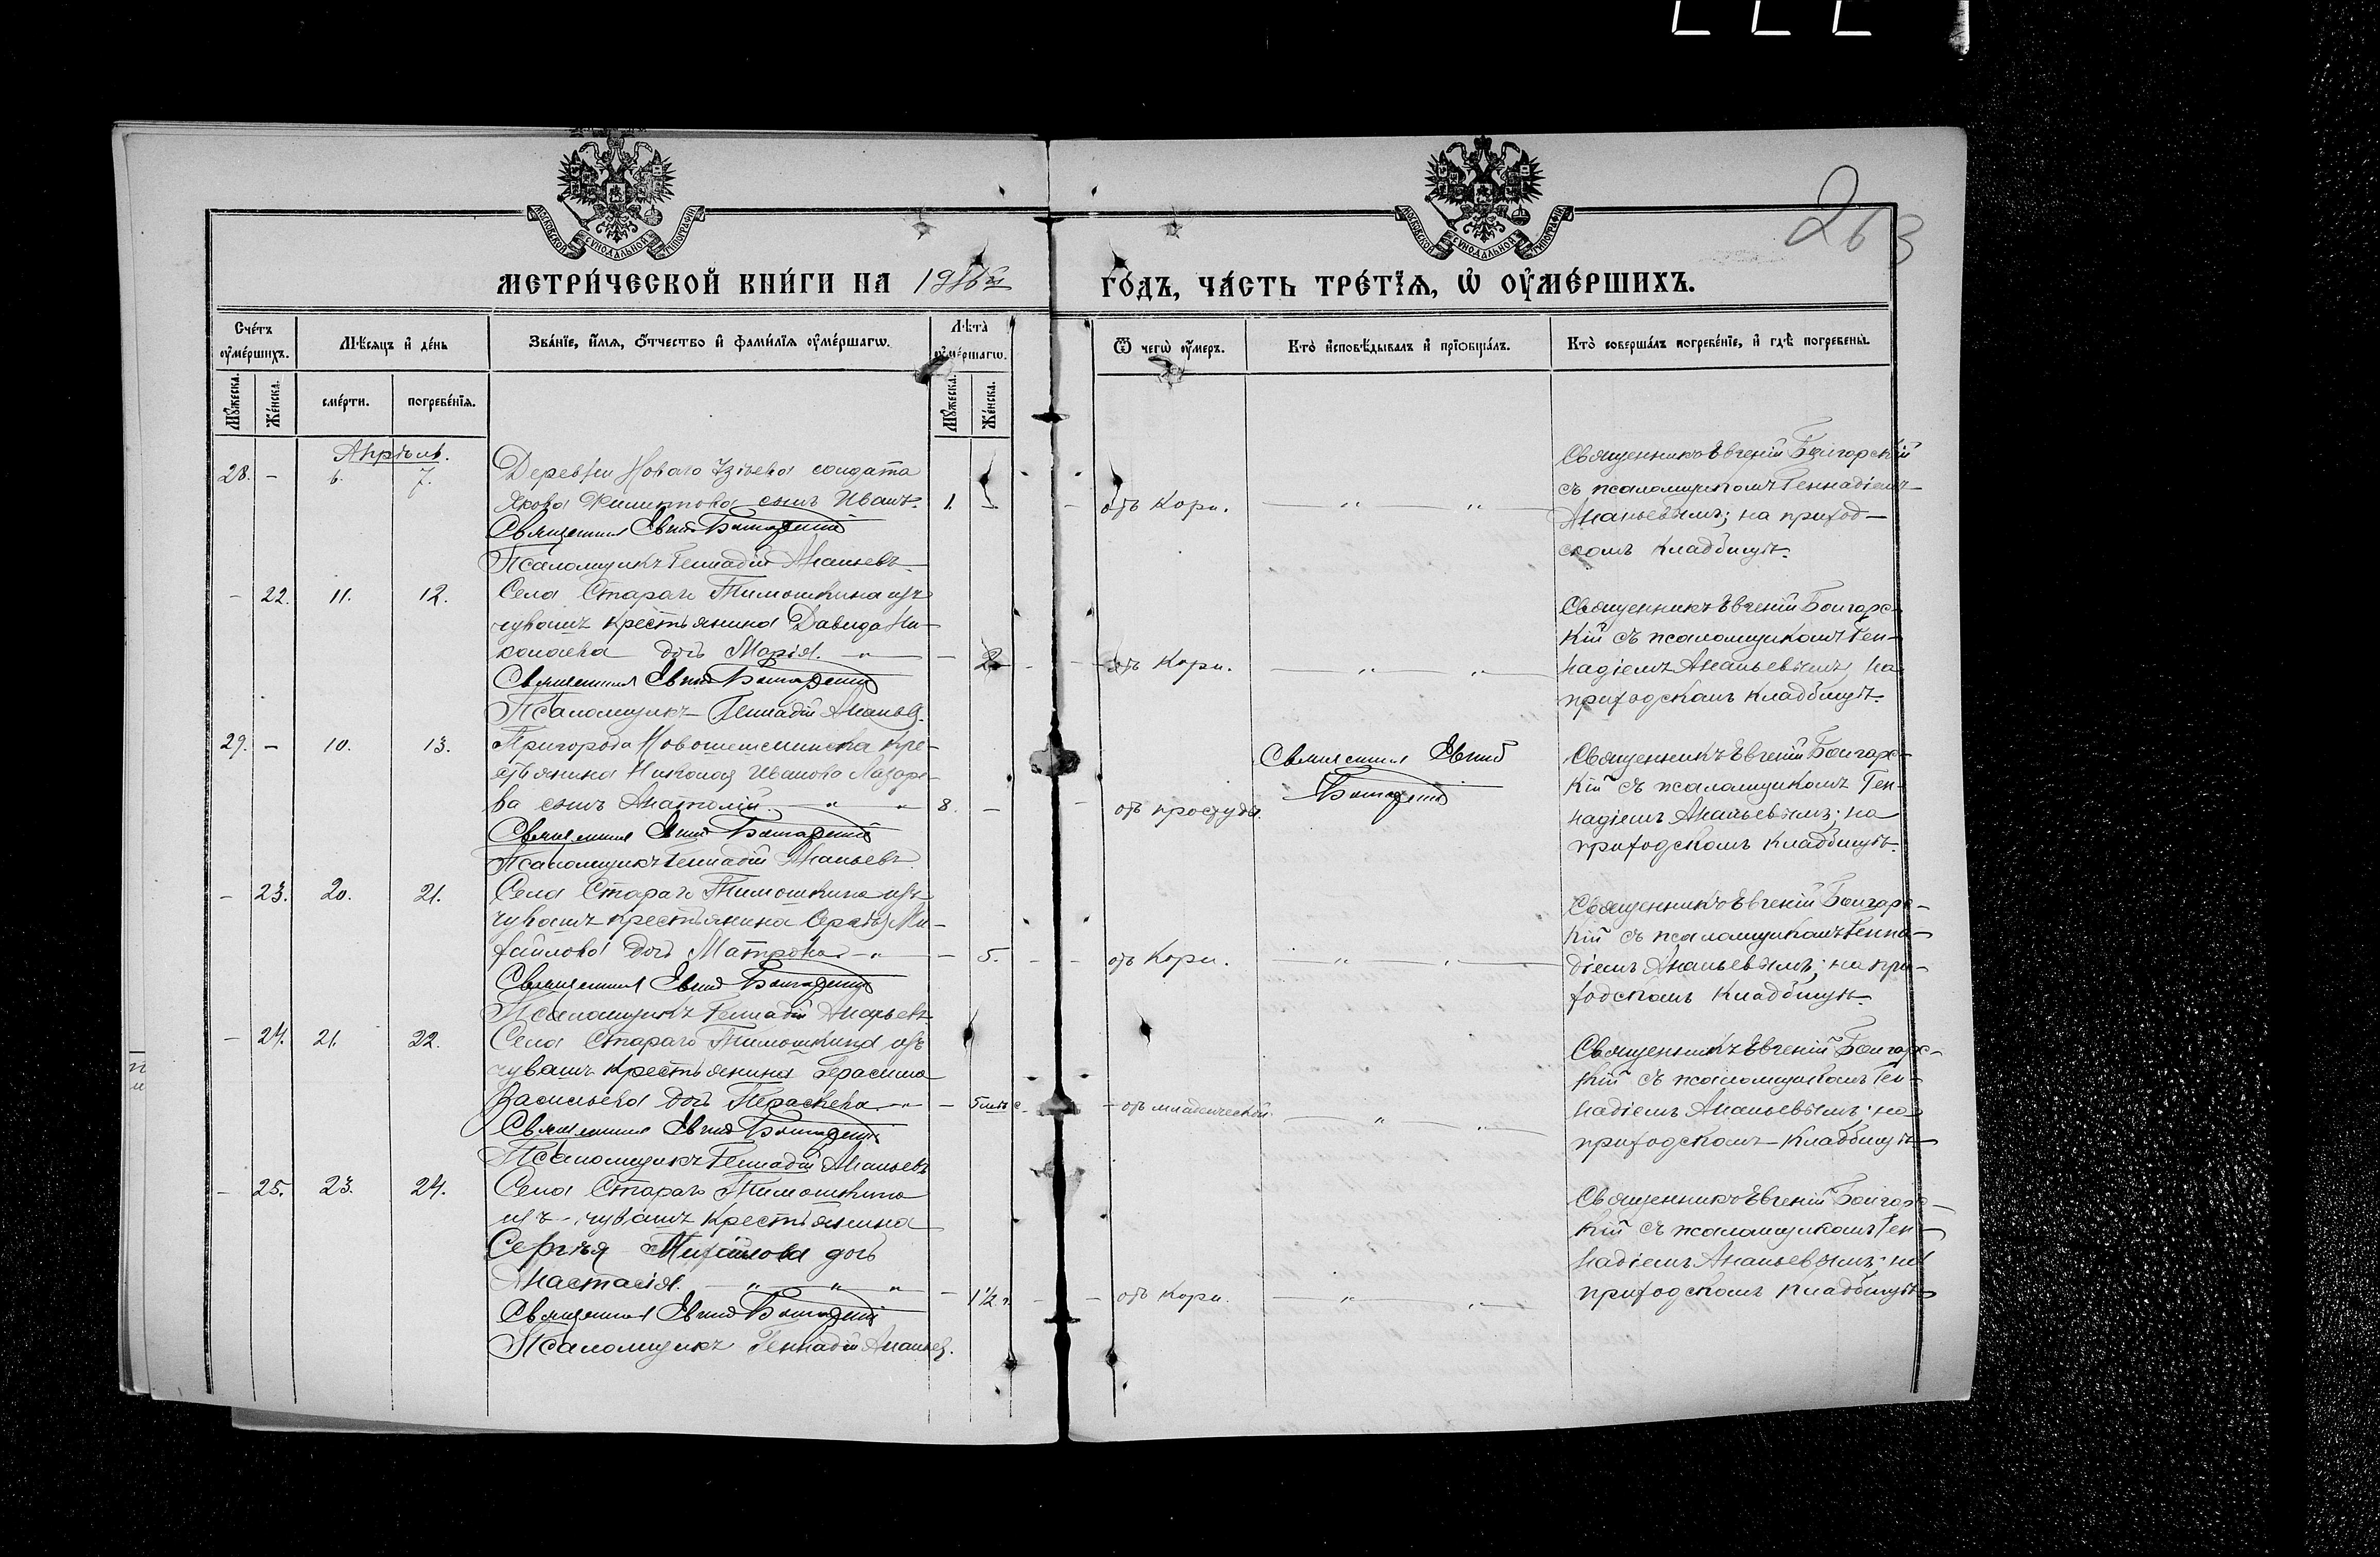 263
МЕТРИ́ЧЕСКОЙ КНИ́ГИ НА 1916й ГО́ДЪ, ЧА́СТЬ ТРЕ́ТЇѦ, Ѡ҆ ОУ҆МЕ́РШИХЪ.
Сче́тъ оу҆ме́ршихъ.
Мѣ́сяцъ и҆ де́нь
Зва́нїе, и҆́мѧ, ѻ҆́тчество и҆ фами́лїѧ оу҆ме́ршагѡ.
Лѣта̀ оу҆ме́ршагѡ.
Ѿ чегѡ̀ оу҆́меръ.
Кто̀ и҆сповѣ́дывалъ и҆ прїѡбща́лъ.
Кто̀ соверша́лъ погребе́нїе, и҆ гдѣ̀ погребены̀.
Мꙋ́жеска.
Же́нска.
сме́рти.
погребе́нїѧ.
Мꙋ́жеска.
Же́нска.
Апрѣль.
28. - 6. 7.
Деревни Новаго солдата
Якова Филиппова сынъ Иванъ. 1. -
Священникъ Евгеній Боигорскій
Псаломщикъ Геннадій Ананьевъ
отъ кори. — " — " —
Священникъ Евгеній Боигорскій
съ псаломщикомъ Геннадіемъ
Ананьевымъ; на приход-
скомъ кладбищѣ.
- 22. 11. 12.
Села Стараго Тимошкина изъ
чувашъ крестьянина Давида Ни-
колаева дочь Марія. — " — - 2
Священникъ Евгеній Боигорскій
Псаломщикъ Геннадій Ананьевъ.
отъ кори. — " — " —
Священникъ Евгеній Боигорс-
кій съ псаломщикомъ Ген-
надіемъ Ананьевымъ; на
приходскомъ кладбищѣ.
29. - 10. 13.
Пригорода Новошешминска кре-
стьянина Николая Иванова Лазаре-
ва сынъ Анатолій. — " — " 8. -
Священникъ Евгеній Боигорскій
Псаломщикъ Геннадій Ананьевъ
отъ простуды.
Священникъ Евгеній
Боигорскій
Священникъ Евгеній Боигорс-
кій съ псаломщикомъ Ген-
надіемъ Ананьевымъ; на
приходскомъ кладбищѣ.
- 23. 20. 21.
Села Стараго Тимошкина изъ
чувашъ крестьянина Ми-
хайлова дочь Матрона. — " — - 5.
Священникъ Евгеній Боигорскій
Псаломщикъ Геннадій Ананьевъ.
отъ кори. — " — " —
Священникъ Евгеній Боигорс-
кій съ псаломщикомъ Генна-
діемъ Ананьевымъ; на при-
ходскомъ кладбищѣ
- 24. 21. 22.
Села Стараго Тимошкина изъ
чувашъ крестьянина Герасима
Васильева дочь Параскева. — " - 5 мѣс.
Священникъ Евгеній Боигорскій
Псаломщикъ Геннадій Ананьевъ
отъ младенческой — " — " —
Священникъ Евгеній Боигорс-
кій съ псаломщикомъ Ген-
надіемъ Ананьевымъ; на
приходскомъ кладбищѣ
- 25. 23. 24.
Села Стараго Тимошкина
изъ чувашъ крестьянина
Сергѣя Михайлова дочь
Анастасія. — " — " — " - 1½ г.
Священникъ Евгеній Боигорскій
Псаломщикъ Геннадій Ананьевъ.
отъ кори. — " — " —
Священникъ Евгеній Боигорс-
кій съ псаломщикомъ Ген-
надіемъ Ананьевымъ; на
приходскомъ кладбищѣ